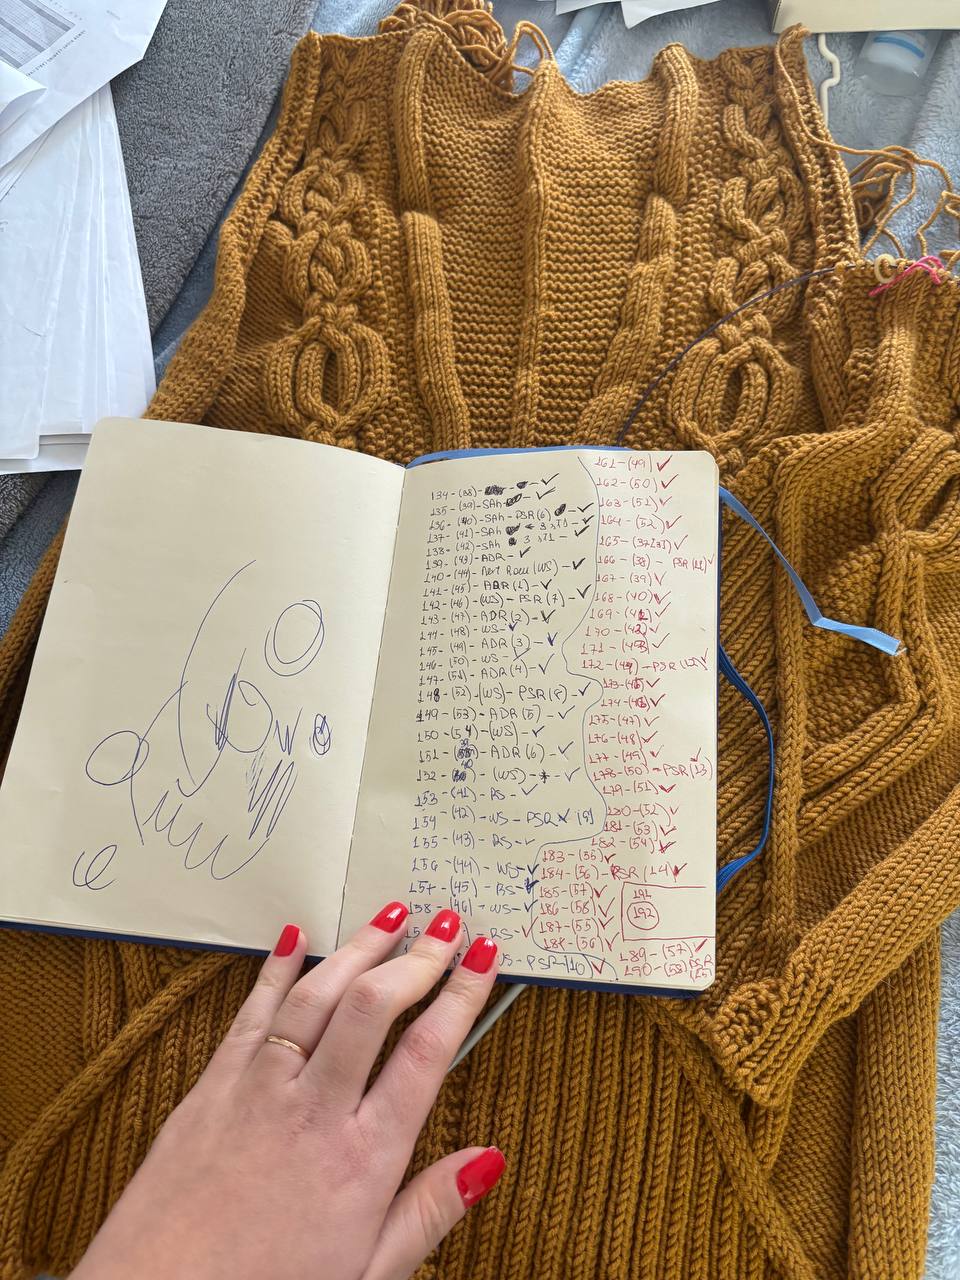 134-(38)- ✓
135-(39)-SAh ✓
136-(40)-SAh-PSR(6) - ✓
137-(41)-SAh ✓
138-(42)-SAh ✓
139-(43)-ADR-✓
140-(44)- (WS)-✓
141-(45)-ADR(1)-✓
142-(46)-(WS)-PSR(7)-✓
143-(47)-ADR(2)-✓
144-(48)-WS-✓
145-(49)-ADR(3)-✓
146-(50)-WS-✓
147-(51)-ADR(4)-✓
148-(52)-(WS)-PSR(8)-✓
149-(53)-ADR(5)-✓
150-(54)-(WS)-✓
151-(39)-ADR(6)-✓
152-(40)-(WS)-✓
153-(41)-RS-✓
154-(42)-WS-PSR ✓ (9)
155-(43)-RS-✓
156-(44)-WS-✓
157-(45)-RS-✓
158-(46)-WS-✓
RS-✓
WS-PSR(10) ✓
161-(49) ✓
162-(50) ✓
163-(51) ✓
164-(52) ✓
165-(37) ✓
166-(38)-PSR(11) ✓
167-(39) ✓
168-(40) ✓
169-(41) ✓
170-(42) ✓
171-(43) ✓
172-(44)-PSR(12) ✓
173-(45) ✓
174-(46) ✓
175-(47) ✓
176-(48) ✓
177-(49) ✓
178-(50)-PSR(13 ✓
179-(51) ✓
180-(52) ✓
181-(53) ✓
182-(54) ✓
183-(55) ✓
184-(56)-PSR(14) ✓
185-(57) ✓
186-(58) ✓
187-(55) ✓
188-(56) ✓
191
192
189-(57) ✓
190-(58) PSR
(15)